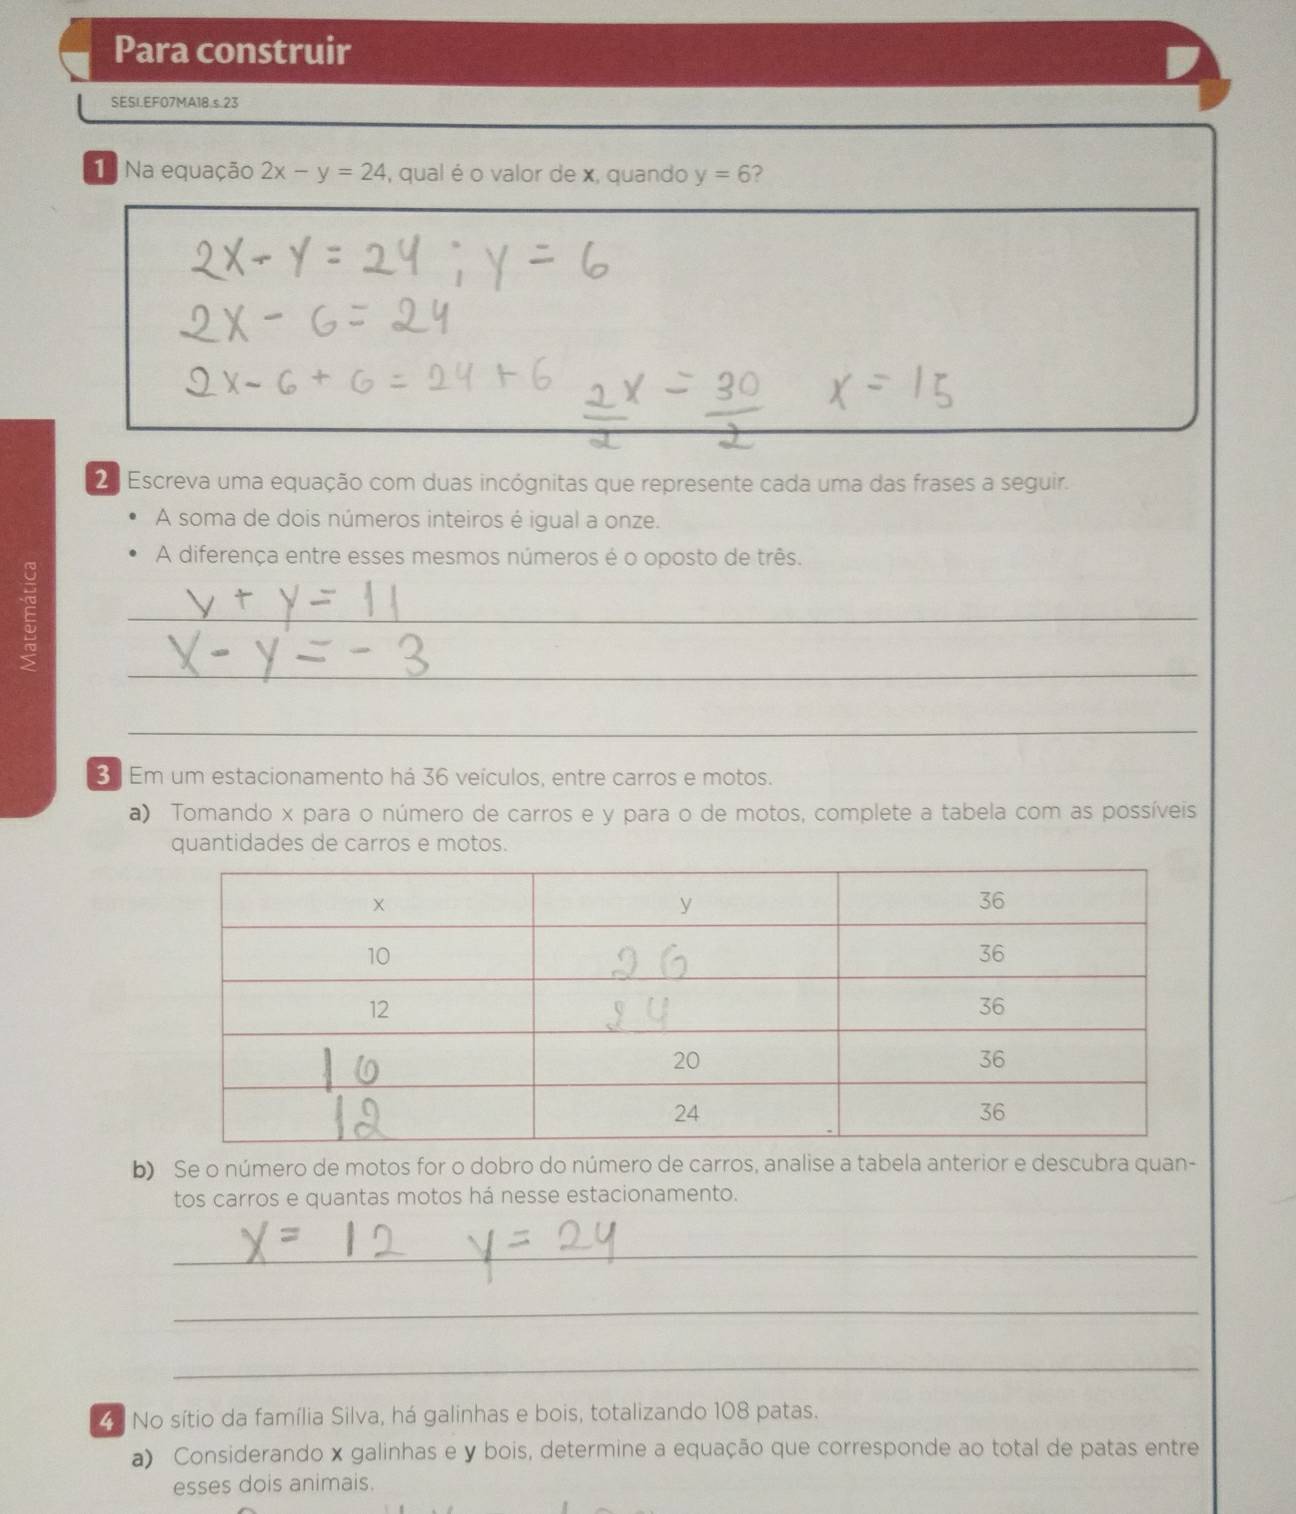 Para construir
SESI.EF07MA18.s.23
1 Na equação 2x - y = 24, qual é o valor de x, quando y = 6?
2x - y = 24 ; y = 6
2x - 6 = 24
2x - 6 + 6 = 24 + 6
2x/2 = 30/2 x = 15
2 Escreva uma equação com duas incógnitas que represente cada uma das frases a seguir.
• A soma de dois números inteiros é igual a onze.
• A diferença entre esses mesmos números é o oposto de três.
x + y = 11
x - y = - 3
Matemática
3 Em um estacionamento há 36 veículos, entre carros e motos.
a) Tomando x para o número de carros e y para o de motos, complete a tabela com as possíveis
quantidades de carros e motos.
x y 36
10 26 36
12 24 36
16 20 36
12 24 36
b) Se o número de motos for o dobro do número de carros, analise a tabela anterior e descubra quan-
tos carros e quantas motos há nesse estacionamento.
x = 12 y = 24
4 No sítio da família Silva, há galinhas e bois, totalizando 108 patas.
a) Considerando x galinhas e y bois, determine a equação que corresponde ao total de patas entre
esses dois animais.